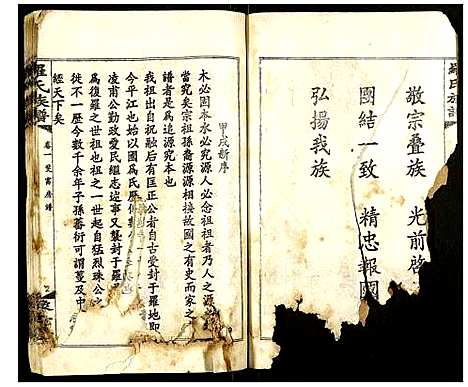 羅氏族譜
敬宗叠族 光前啓
團結一致 精忠報國
弘揚我族
甲戌新序
木必固本水必究源人必念祖祖者乃人之源
譜者是爲追源究本也
當究矣宗祖孫裔源源相接故國之有史而家之
我祖出之來歷序后有匡正公者自古受封于羅地即
今平江也始以國爲氏歷
凌甫公勤政愛民繼志述事又襲封于羅
爲復羅之世祖也祖之一世起自猛烈珠公
徙不一歷今數千余年子孫蕃衍可謂蔓及中
經天下矣
羅氏族譜
卷一